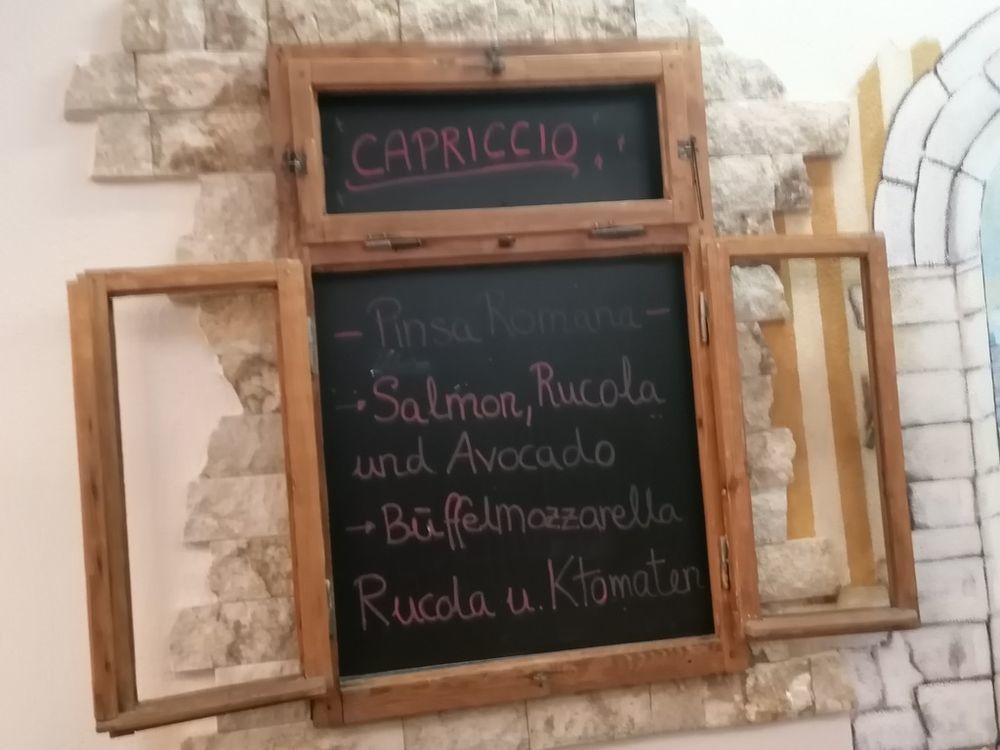 CAPRICCIO
- Pinsa Romana -
→ Salmon, Rucola
und Avocado
→ Büffelmozzarella
Rucola u. Ktomaten